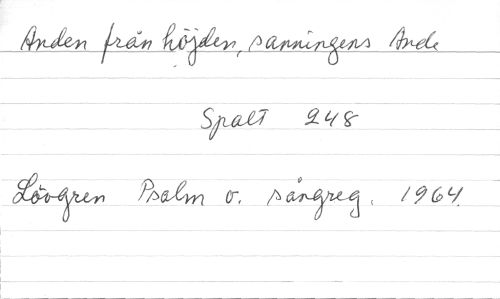 Anden från höjden, sanningens Ande
Spalt 248
Lövgren Psalm o. sångreg. 1964.